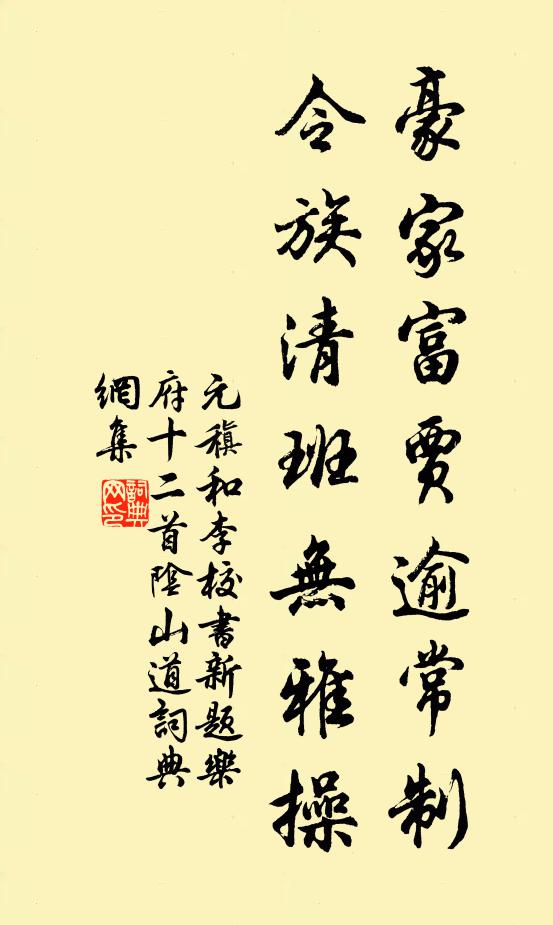 豪家富賈逾常制
令族清班無雅操
元稹和李校書新題樂
府十二首陰山道詞典
網集
詞典
网印